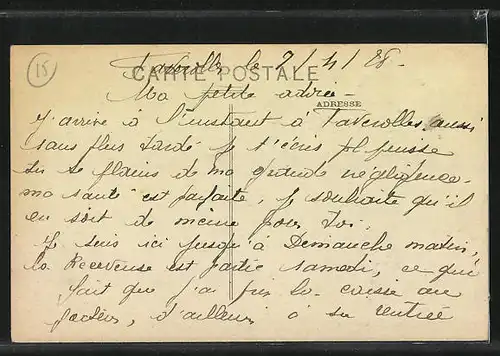 15
Faverolles le 2/4/28-
CARTE POSTALE
Ma petite adorée-
ADRESSE
J'arrive à l'instant à Faverolles aussi
sans plus tardé je t'écris pl puisse
tu te plains de ma grande négligence-
ma santé est parfaite, je souhaite qu'il
en soit de même pour toi.
Je suis ici jusqu'à Demanche matin,
la Receveuse est partie samedi, ce qui
fait que j'ai pris la caisse au
facteur, d'ailleurs à sa rentrée